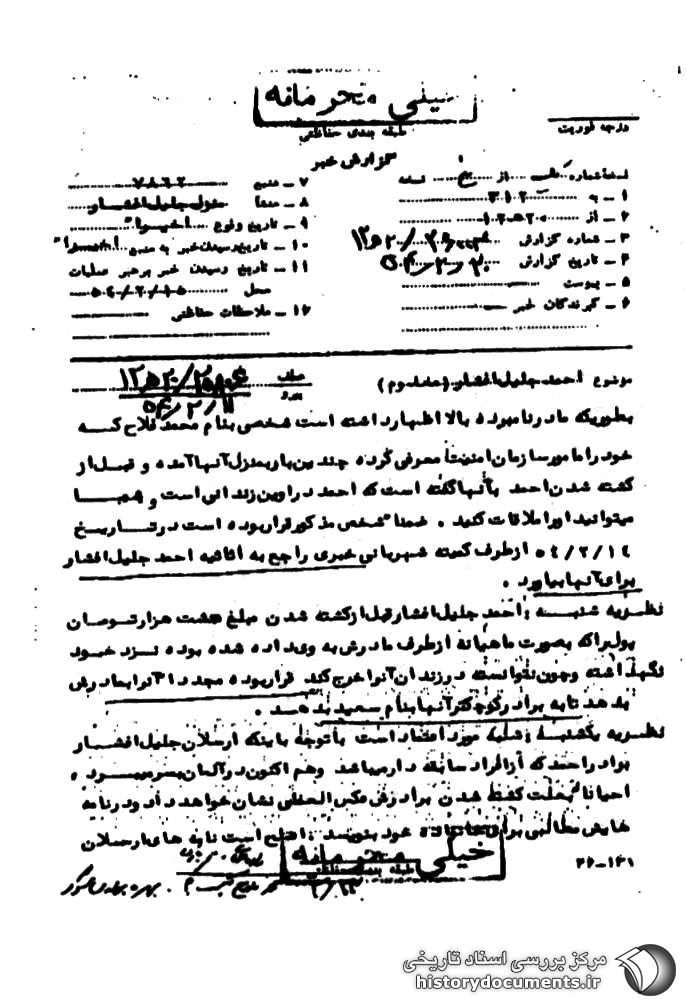 خیلی محرمانه
طبقه بندی حفاظتی
درجه فوریت
گزارش خبر
نسخه شماره از نسخه
۱ ـ به ۳۱۲
۲ ـ از
۳ ـ شماره گزارش
۴ ـ تاریخ گزارش
۵ ـ پیوست
۶ ـ گیرندگان خبر
۷ ـ منبع ۷۸۶۲
۸ ـ منشأ منزل جلیل افشار
۹ ـ تاریخ وقوع اخیرا"
۱۰ ـ تاریخ رسیدن خبر به منبع
۱۱ ـ تاریخ رسیدن خبر برهبر عملیات
محل ۵۴/۲/۱۵
۱۲ ـ ملاحظات حفاظتی
موضوع احمد جلیل افشار
بطوریکه مادر نامبرده بالا اظهار داشته است شخصی بنام محمد فلاح که
خود را مامور سازمان امنیت معرفی کرده چندین بار بمنزل آنها آمده و قبل از
کشته شدن احمد بآنها گفته است که احمد در اوین زندانی است و شما
میتوانید او را ملاقات کنید . ضمنا" شخص مذکور قرار بوده است در تاریخ
۵۴/۲/۱۴ از طرف کمیته شهربانی خبری راجع به اثاثیه احمد جلیل افشار
برای آنها بیاورد .
نظریه شنبه : احمد جلیل افشار قبل از کشته شدن مبلغ هشت هزار تومان
پول را که بصورت ماهیانه از طرف مادرش به وی داده شده بوده نزد خود
نگهداشته و چون نتوانسته در زندان آنرا خرج کند قرار بوده مجددا" آنرا بمادرش
بدهد تا به برادر کوچکتر آنها بنام سعید بدهد .
نظریه یکشنبه : شنبه مورد اعتماد است با توجه باینکه ارسلان جلیل افشار
برادر احمد که از افراد سابقه دار میباشد و هم اکنون در آلمان بسر میبرد .
احیانا" بعلت کشته شدن برادرش عکس العملی نشان خواهد داد و در نامه
هایش مطالبی برای خانواده خود بنویسد . است نامه های ارسلان
خیلی محرمانه
طبقه بندی حفاظتی
۳۶-۱۳۱
مرکز بررسی اسناد تاریخی
historydocuments.ir